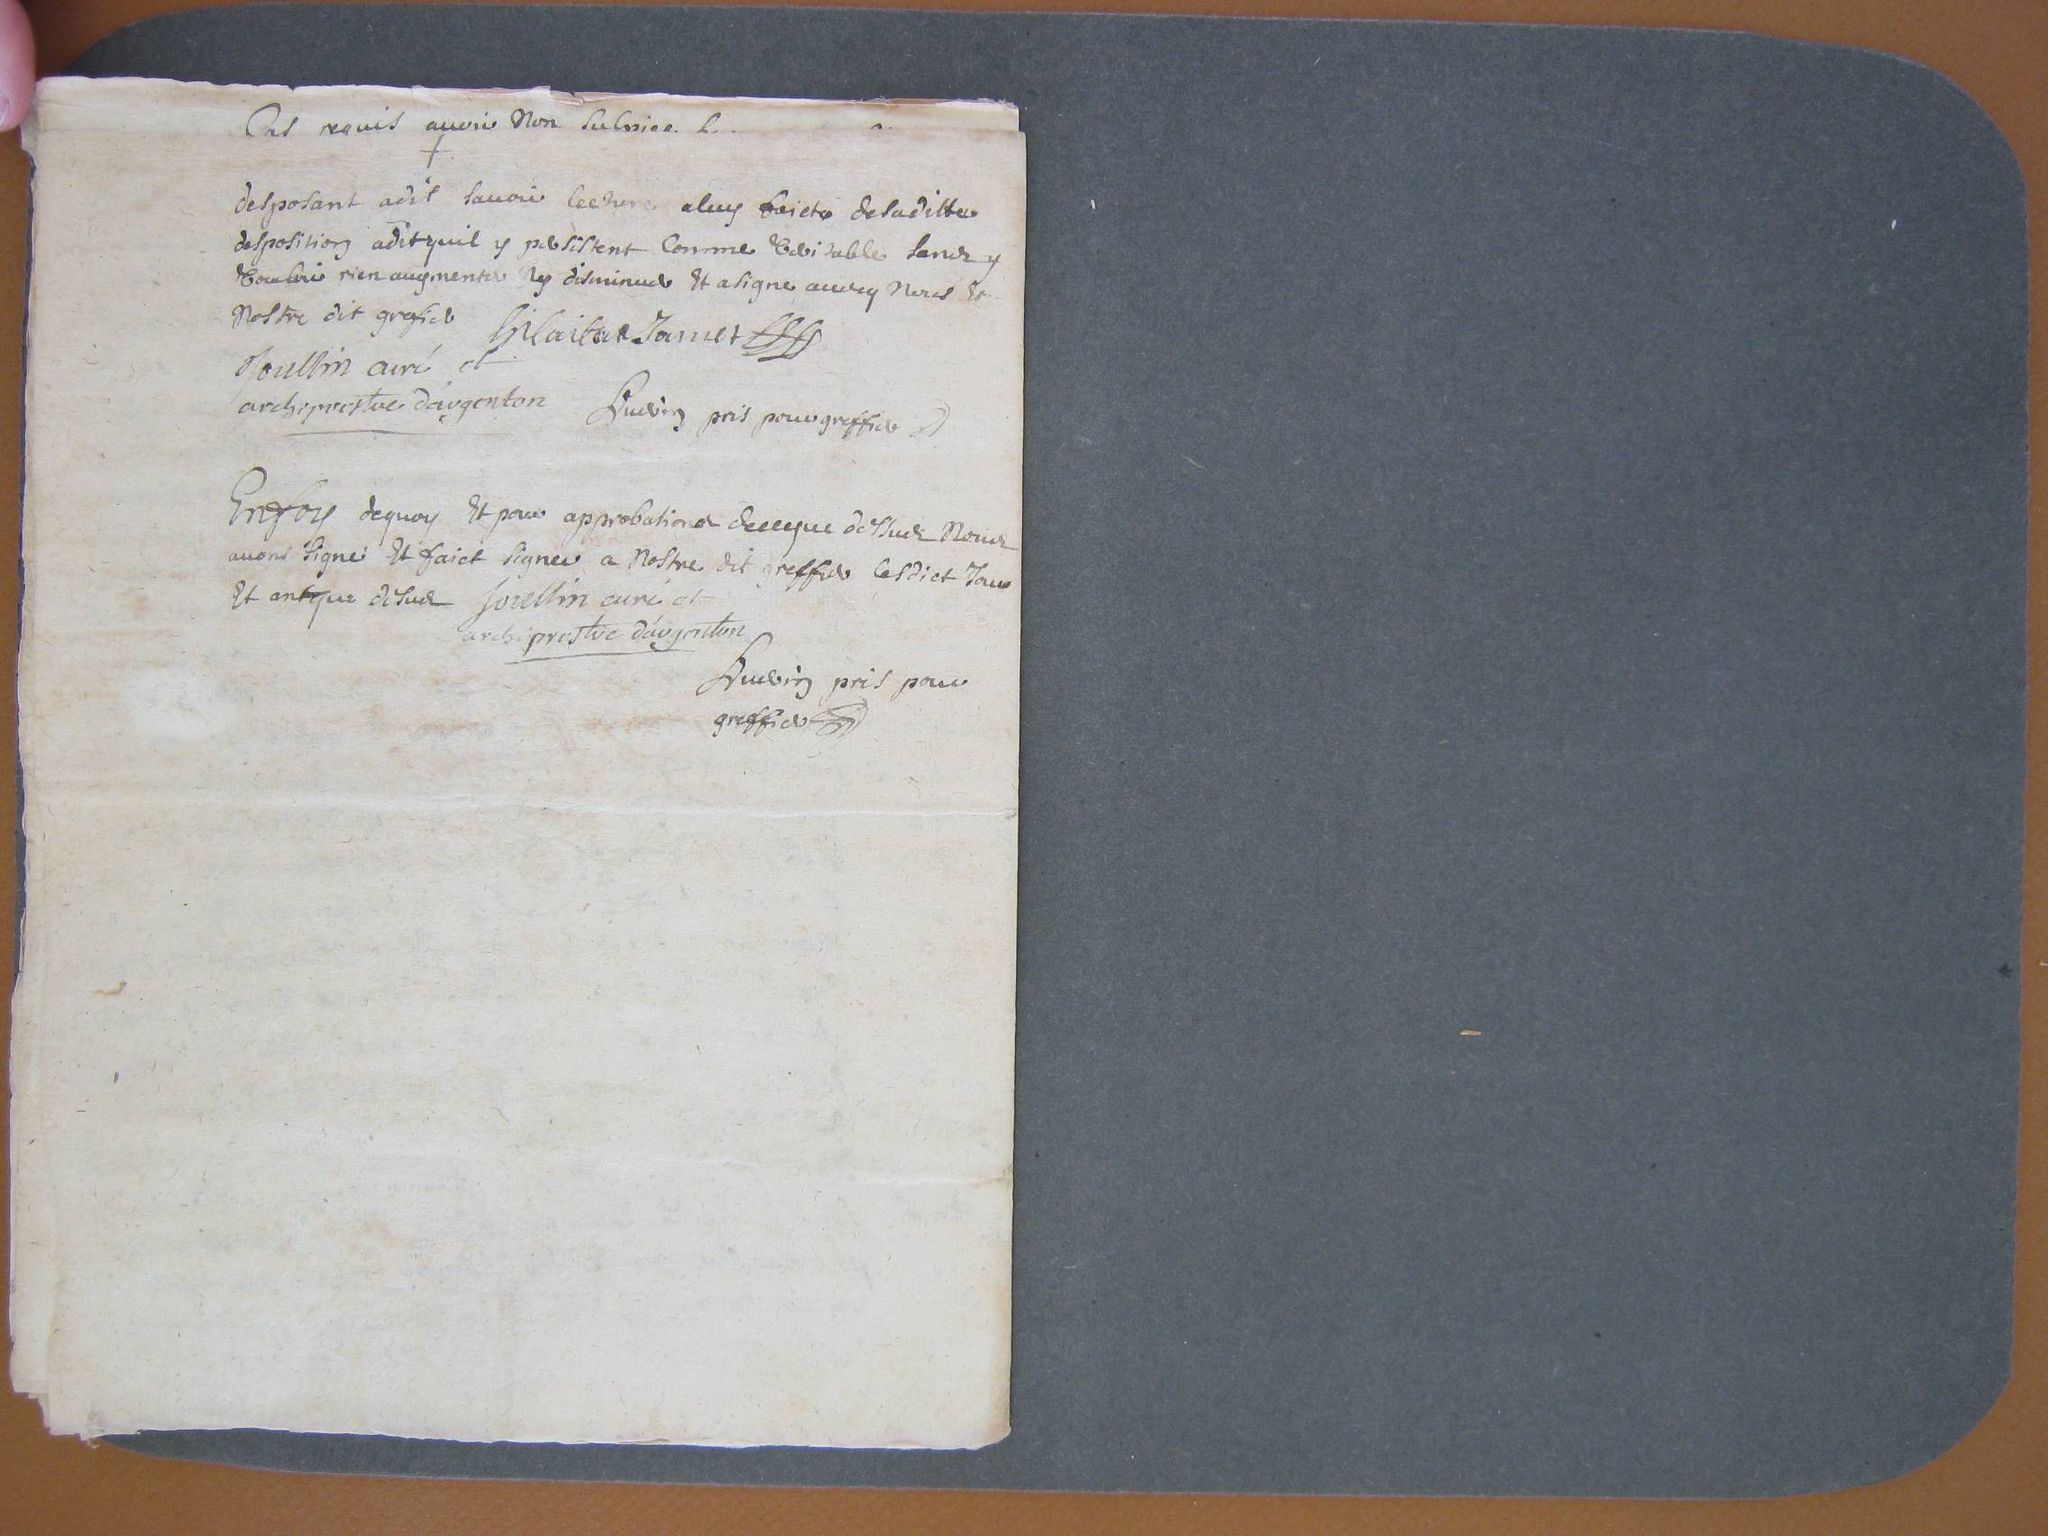 requis avoir non
desposant a dit savoir lecture a luy faicte de saditte
desposition a dit quil y persistent comme veritable sans y
vouloir rien augmenter ny disminuer Et a signe avecq nous Et
Nostre dit grefier hilaire Jamet
Joullin curé et
archiprestre d'argenton pris pour greffier
En foy de quoy Et pour approbation de ce que dessus Nous
avons signé Et faict signer a Nostre dit greffier lesdict Jour
Et an que desus Joullin curé et
archiprestre d'argenton
pris pour
greffier